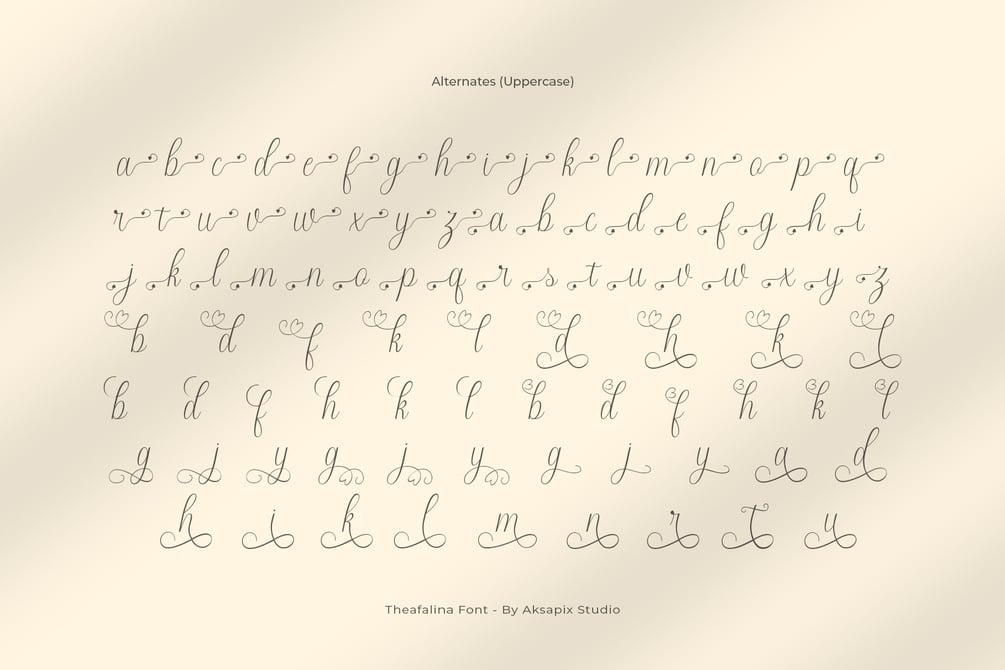 Alternates (Uppercase)
a b c d e f g h i j k l m n o p q
r t u v w x y z a b c d e f g h i
j k l m n o p q r s t u v w x y z
b d f k l d h k l
b d f h k l b d f h k l
g j y g j y g j y a d
h i k l m n r t u
Theafalina Font - By Aksapix Studio